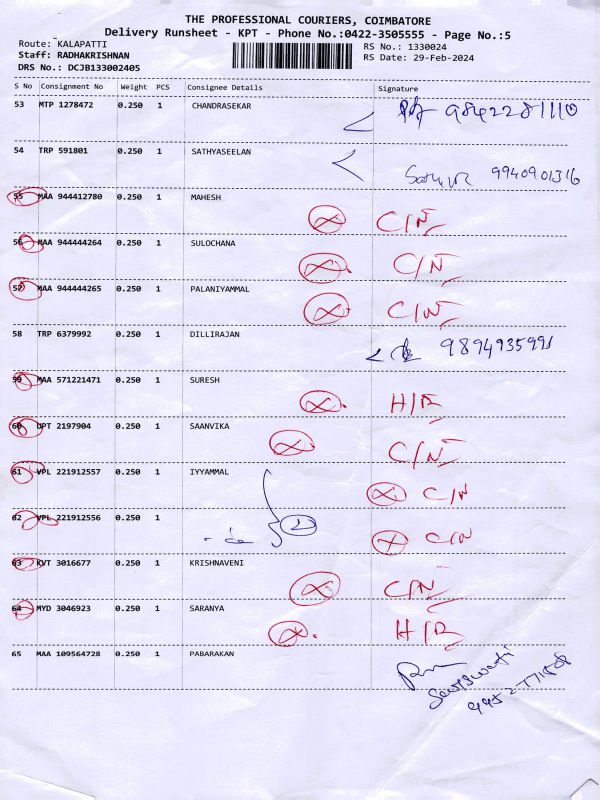 THE PROFESSIONAL COURIERS, COIMBATORE
Delivery Runsheet - KPT - Phone No.:0422-3505555 - Page No.:5
Route: KALAPATTI
Staff: RADHAKRISHNAN
DRS No.: DCJB133002405
RS No.: 1330024
RS Date: 29-Feb-2024
S No Consignment No Weight PCS Consignee Details Signature
53 MTP 1278472 0.250 1 CHANDRASEKAR
9842281110
54 TRP 591801 0.250 1 SATHYASEELAN
9940901316
55 MAA 944412780 0.250 1 MAHESH
C/N
56 MAA 944444264 0.250 1 SULOCHANA
C/N
57 MAA 944444265 0.250 1 PALANIYAMMAL
C/N
58 TRP 6379992 0.250 1 DILLIRAJAN
9894935991
59 MAA 571221471 0.250 1 SURESH
H/R
60 UPT 2197904 0.250 1 SAANVIKA
C/N
61 VPL 221912557 0.250 1 IYYAMMAL
C/N
62 VPL 221912556 0.250 1
2 C/N
63 KVT 3016677 0.250 1 KRISHNAVENI
C/N
64 MYD 3046923 0.250 1 SARANYA
H/R
65 MAA 109564728 0.250 1 PABARAKAN